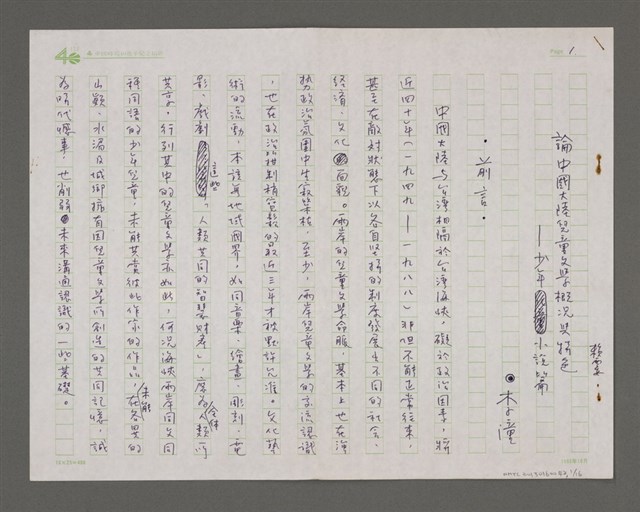 Page 1
論中國大陸兒童文學概況與特色
——少年小說篇
李潼
·前言·
中國大陸與台灣相隔於台灣海峽，礙於政治因素，將
近四十年（一九四九——一九八八）非但不能正常往來，
甚至在敵對狀態下以各自堅持的制度發展出不同的社會、
經濟、文化面貌。兩岸的兒童文學命脈，基本上也在海
勢政治氛圍中生寂榮枯，至少，兩岸兒童文學的交流認識
，也在政治箝制稍寬鬆的最近三年才被默許允准。文化藝
術的流動，本該無地域國界，如同音樂、繪畫、雕刻、電
影、戲劇，這些「人類共同的智慧財產」，應為全体人類所
共享，行列其中的兒童文學亦如此，何況海峽兩岸同文同
種同語的少年兒童，未能共賞彼此作家的作品，未能在各異的
山巔、水湄及城鄉擁有因兒童文學所創造的共同記憶，誠
為時代憾事，也削弱未來溝通認識的一些基礎。